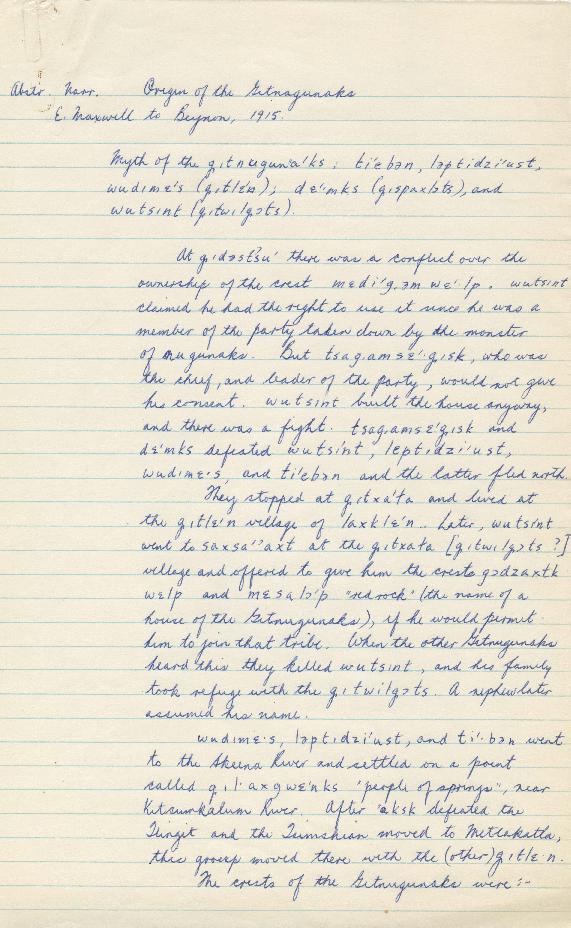 Abstr. Narr. Origin of the Gitnagunaks
E. Maxwell to Beynon, 1915.
Myth of the gıtnugun'a'ks: ti'ɛbən, ləptidzi'ust,
wudimɛ's (gıtlɛ'n); dɛ'ımks (gıspaxlɔts), and
wutsint (gıtwılgɔts).
At there was a conflict over the
ownership of the crest mɛdi'g.əm wɛ'lp. wutsint
claimed he had the right to use it since he was a
member of the party taken down by the monster
of nugunaks. But tsag.amsɛ'g.ısk, who was
the chief, and leader of the party, would not give
his consent. wutsint built the house anyway,
and there was a fight. tsag.amsɛ'g.ısk and
dɛ'mks defeated wutsi'nt, lɛptidzi'ust,
wudimɛ's, and ti'ɛbən and the latter fled north.
They stopped at gıtxa'ta and lived at
the gıtlɛ'n village of laxklɛ'n. Later, wutsint
went to saxsa''axt at the gıtxata [gıtwılgɔts ?]
village and offered to give him the crests gədzaxtk
wɛlp and mɛsalɔ'p "red rock" (the name of a
house of the Gitnugunaks), if he would permit
him to join that tribe. When the other Gitnugunaks
heard this they killed wutsint, and his family
took refuge with the gıtwılgɔts. A nephew later
assumed his name.
wudimɛ's, ləptidzi'ust, and ti'bən went
to the Skeena River and settled on a point
called gıl·axgwɛ'nks "people of springs", near
Kitsumkalum River. After 'aksk defeated the
Tlingit and the Tsimshian moved to Metlakatla,
this group moved there with the (other) gıtlɛ'n.
The crests of the Gitnugunaks were :-